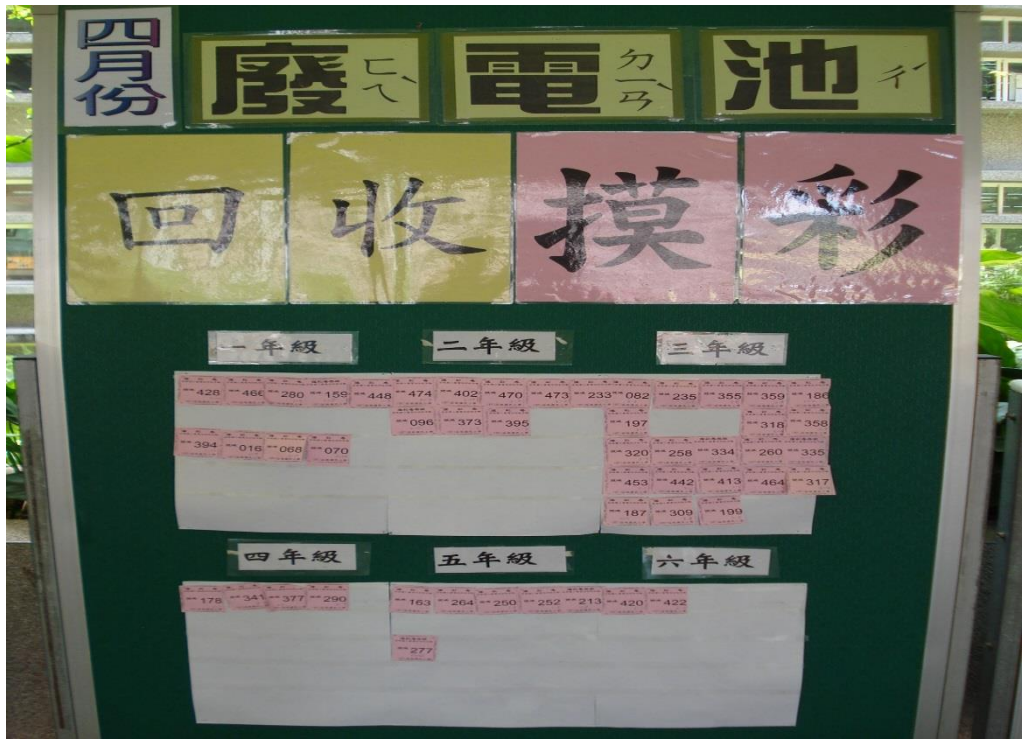 四月份
廢ㄈㄟˋ 電ㄉㄧㄢˋ 池ㄔˊ
回收摸彩
一年級 二年級 三年級
428 466 280 159 448 474 402 470 473 233 082 235 355 359 186
096 373 395 197 318 358
394 016 068 070 320 258 334 260 335
453 442 413 464 317
187 309 199
四年級 五年級 六年級
178 341 377 290 163 264 250 252 213 420 422
277